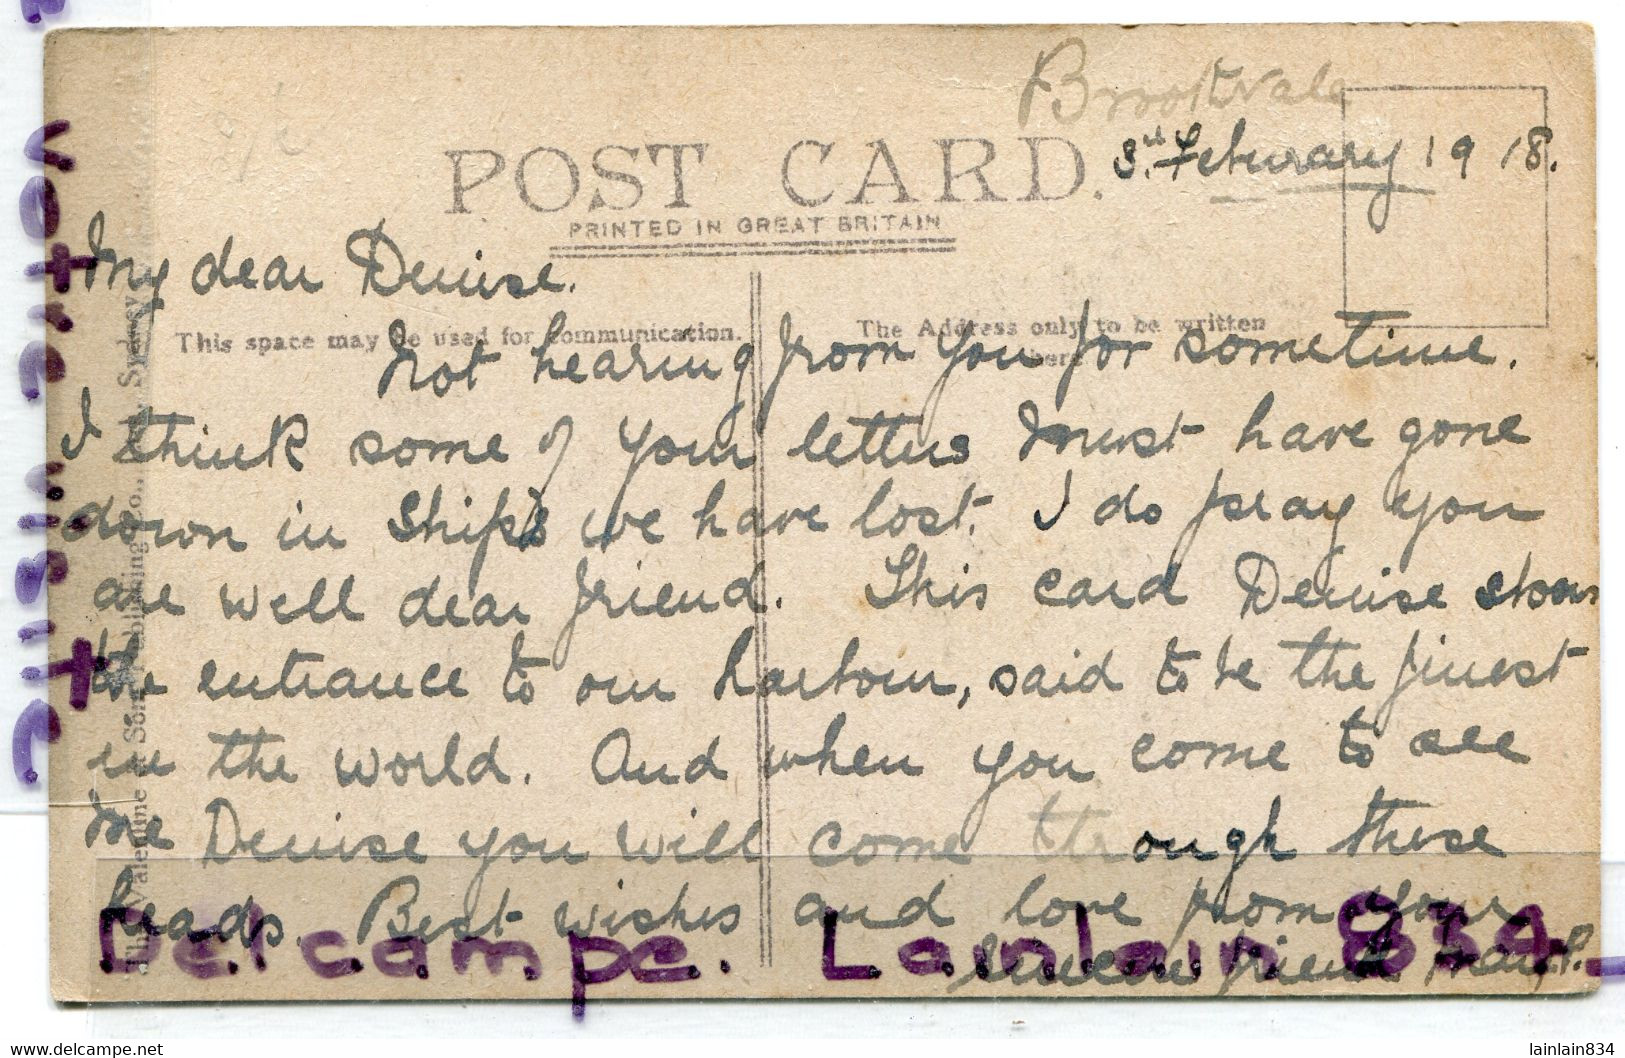 Brookvale
POST CARD.
3rd February 1918.
PRINTED IN GREAT BRITAIN
My dear Denise.
This space may be used for communication.
The Address only to be written
here
Not hearing from you for sometime.
I think some of your letters must have gone
down in ships we have lost. I do pray you
are well dear friend. This card Denise shows
the entrance to our harbour, said to be the finest
in the world. And when you come to see
me Denise you will come through these
heads. Best wishes and love from your
sincere friend
The Valentine & Sons Publishing Co., Ltd., Sydney
Delcampe. Lainlain 834
www.delcampe.net
lainlain834